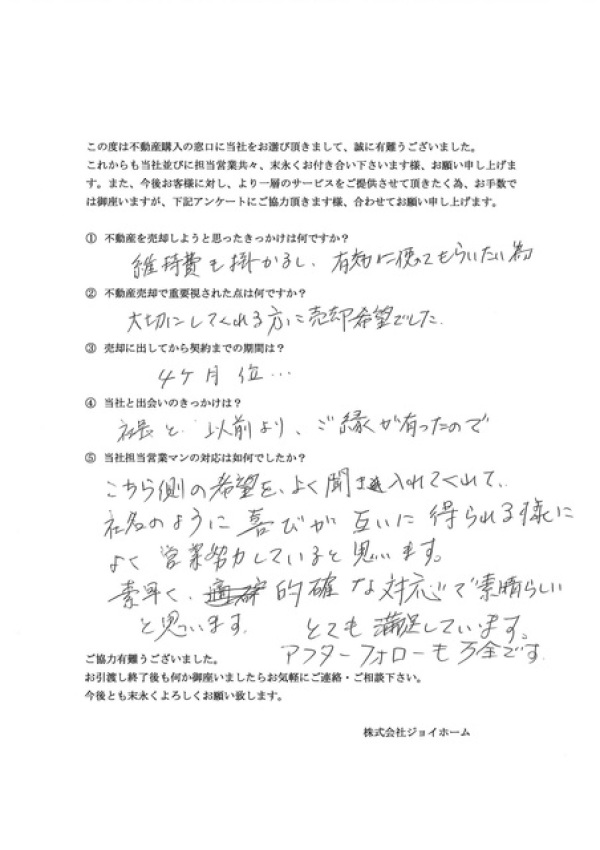 この度は不動産購入の窓口に当社をお選び頂きまして、誠に有難うございました。
これからも当社並びに担当営業共々、末永くお付き合い下さいます様、お願い申し上げま
す。また、今後お客様に対し、より一層のサービスをご提供させて頂きたく為、お手数で
は御座いますが、下記アンケートにご協力頂きます様、合わせてお願い申し上げます。
① 不動産を売却しようと思ったきっかけは何ですか？
維持費も掛かるし、有効に使ってもらいたい為
② 不動産売却で重要視された点は何ですか？
大切にしてくれる方に売却希望でした。
③ 売却に出してから契約までの期間は？
4ヶ月位…
④ 当社と出会いのきっかけは？
社長と、以前より、ご縁が有ったので
⑤ 当社担当営業マンの対応は如何でしたか？
こちら側の希望を、よく聞き入れてくれて、
社名のように喜びが互いに得られる様に
よく営業努力していると思います。
素早く、的確な対応で素晴らしい
と思います。とても満足しています。
アフターフォローも万全です。
ご協力有難うございました。
お引渡し終了後も何か御座いましたらお気軽にご連絡・ご相談下さい。
今後とも末永くよろしくお願い致します。
株式会社ジョイホーム